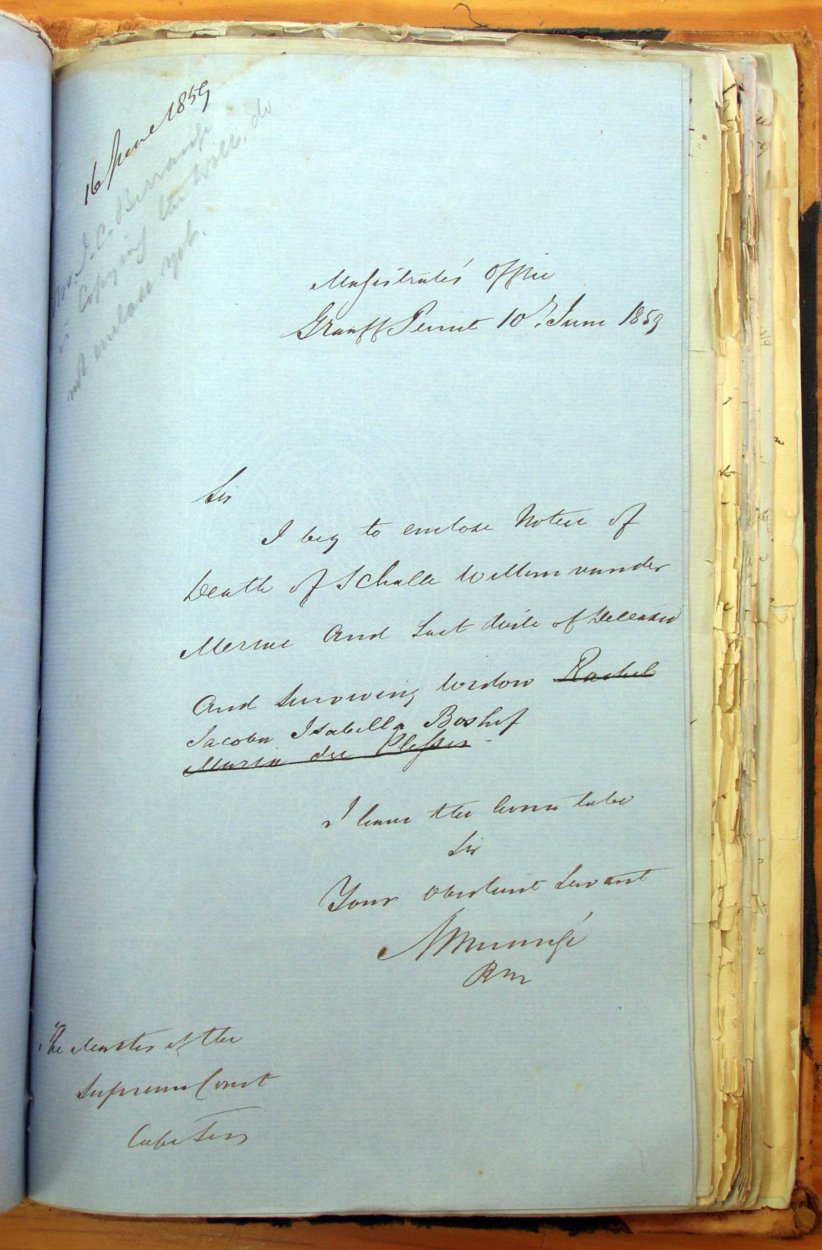 16 June 1859
Mr. J. C. Berrangé
is Copying the Will, do
not enclose yet.
Magistrate's Office
Graaff Reinet 10th June 1859
Sir
I beg to enclose Notice of
Death of Schalk Willem van der
Merwe And Last Will of Deceased
And Surviving Widow Rachel
Jacoba Isabella Boshof
Maria du Plessis
I have the honor to be
Sir
Your Obedient Servant
Berrangé
RM
The Master of the
Supreme Court
Cape Town